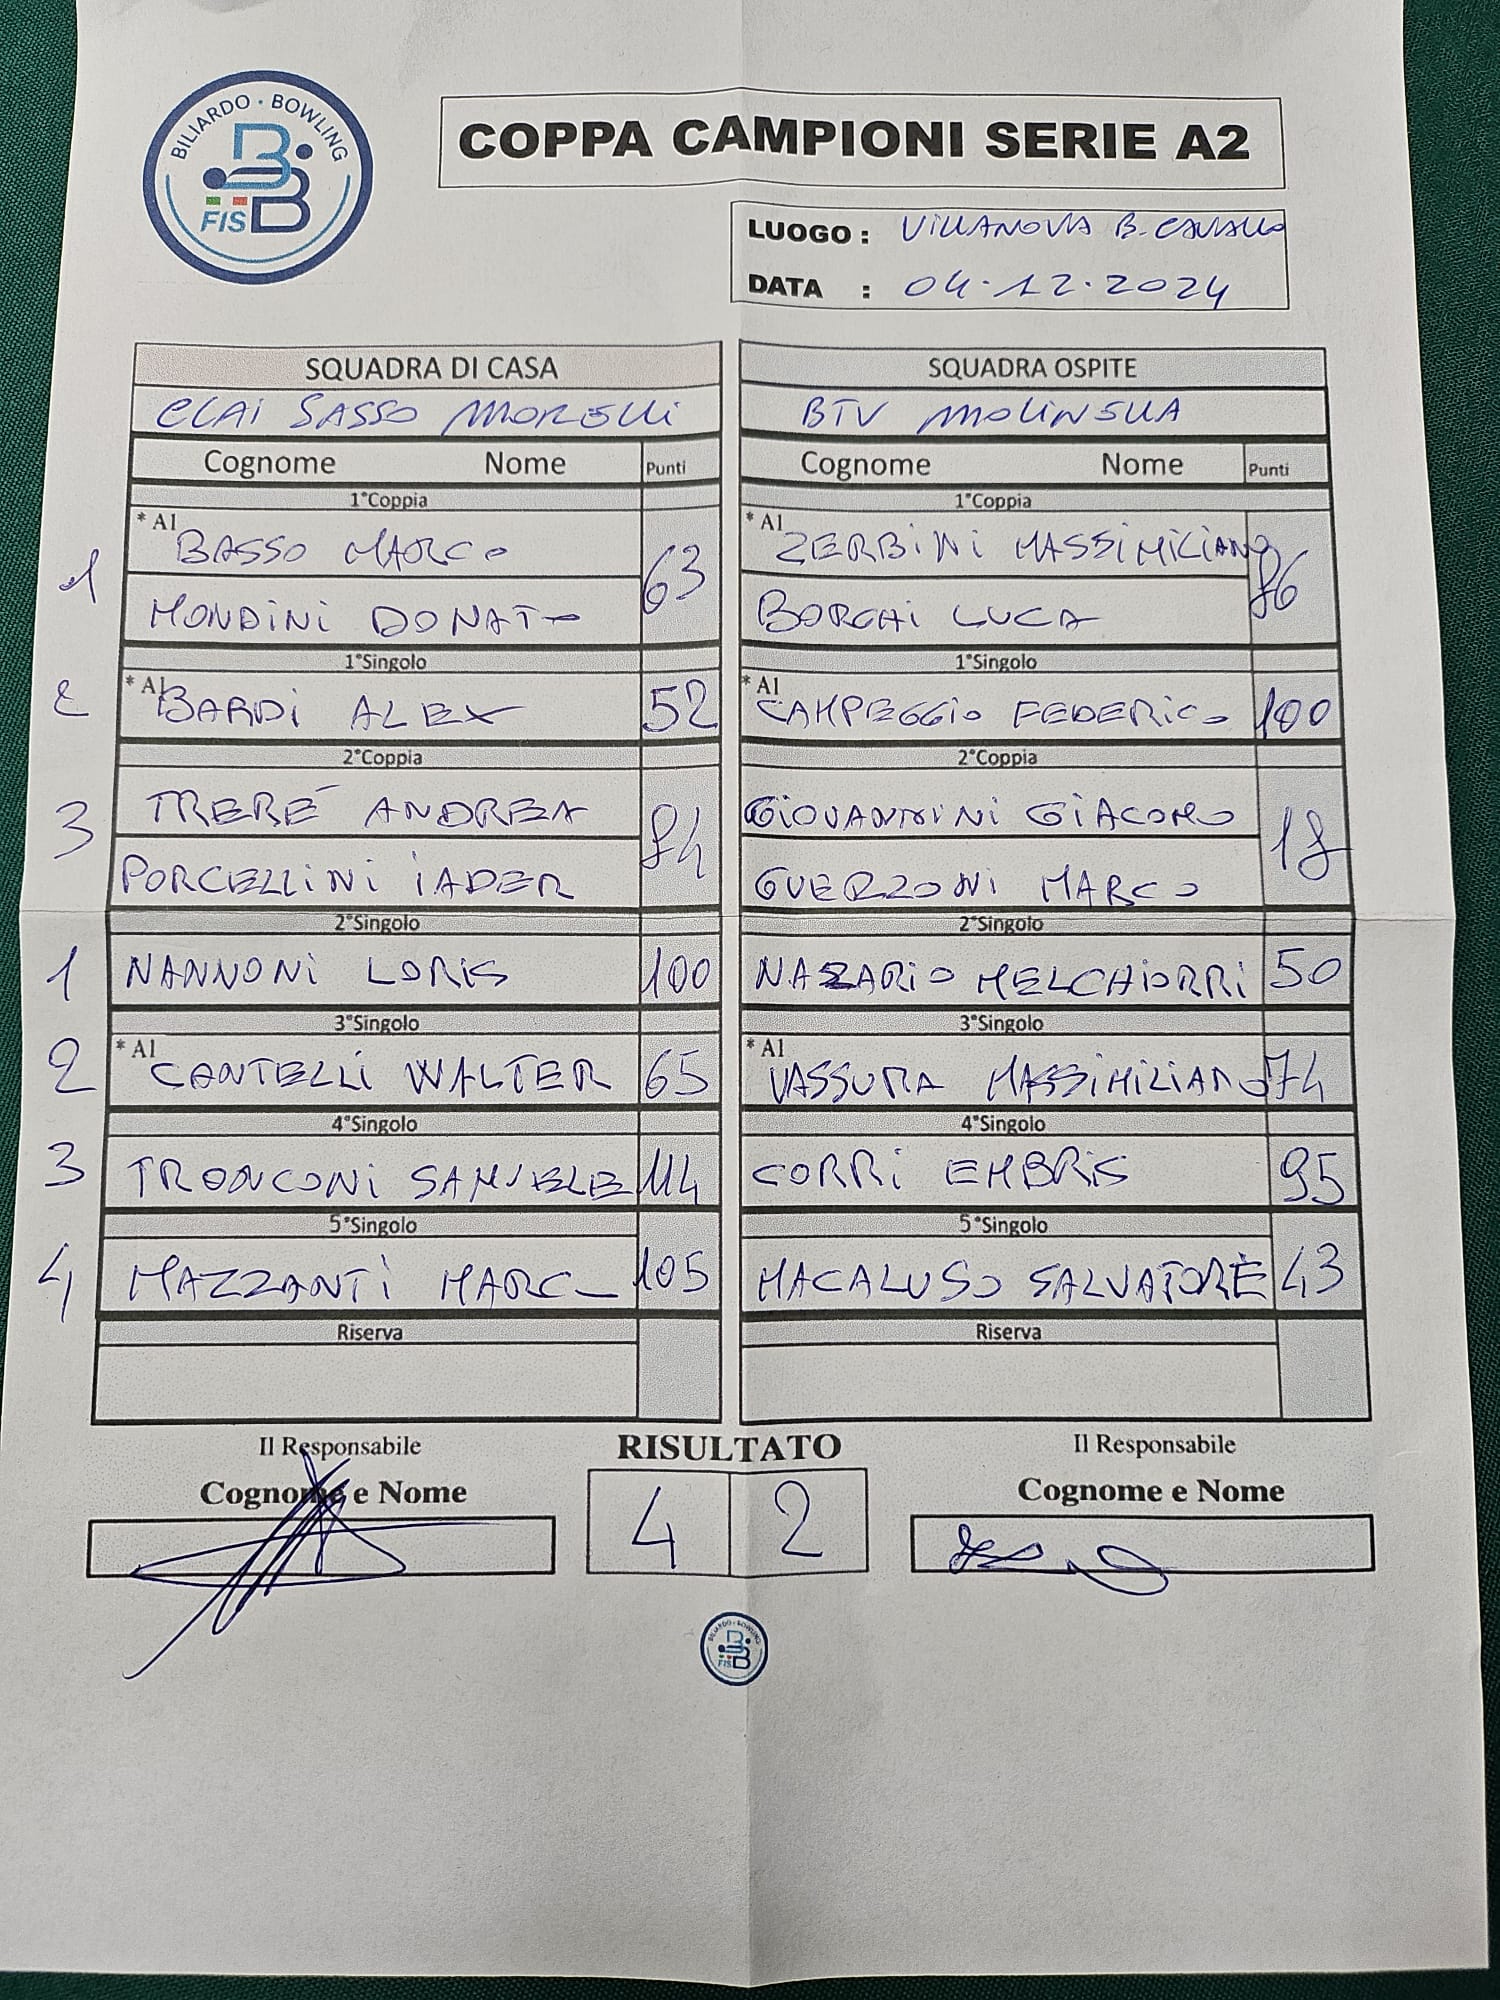 BILIARDO · BOWLING
FISB
COPPA CAMPIONI SERIE A2
LUOGO : VILLANOVA B. CAVALLO
DATA : 04.12.2024
SQUADRA DI CASA
CLAI SASSO MORELLI
Cognome Nome Punti
1°Coppia
* A1
1 BASSO MARCO 63
MONDINI DONATO
1°Singolo
* A1
2 BARDI ALEX 52
2°Coppia
3 TRERÉ ANDREA 84
PORCELLINI IADER
2°Singolo
1 NANNONI LORIS 100
3°Singolo
* A1
2 CANTELLI WALTER 65
4°Singolo
3 TRONCONI SAMUELE 114
5°Singolo
4 MAZZANTI MARCO 105
Riserva
SQUADRA OSPITE
BTV MOLINELLA
Cognome Nome Punti
1°Coppia
* A1
ZERBINI MASSIMILIANO 86
BORGHI LUCA
1°Singolo
* A1
CAMPEGGIO FEDERICO 100
2°Coppia
GIOVANNINI GIACOMO 18
GUERZONI MARCO
2°Singolo
NAZARIO MELCHIORRI 50
3°Singolo
* A1
VASSURA MASSIMILIANO 74
4°Singolo
CORRI EMBRIS 95
5°Singolo
MACALUSO SALVATORE 43
Riserva
Il Responsabile
Cognome e Nome
RISULTATO
4 2
Il Responsabile
Cognome e Nome
BILIARDO · BOWLING
FISB